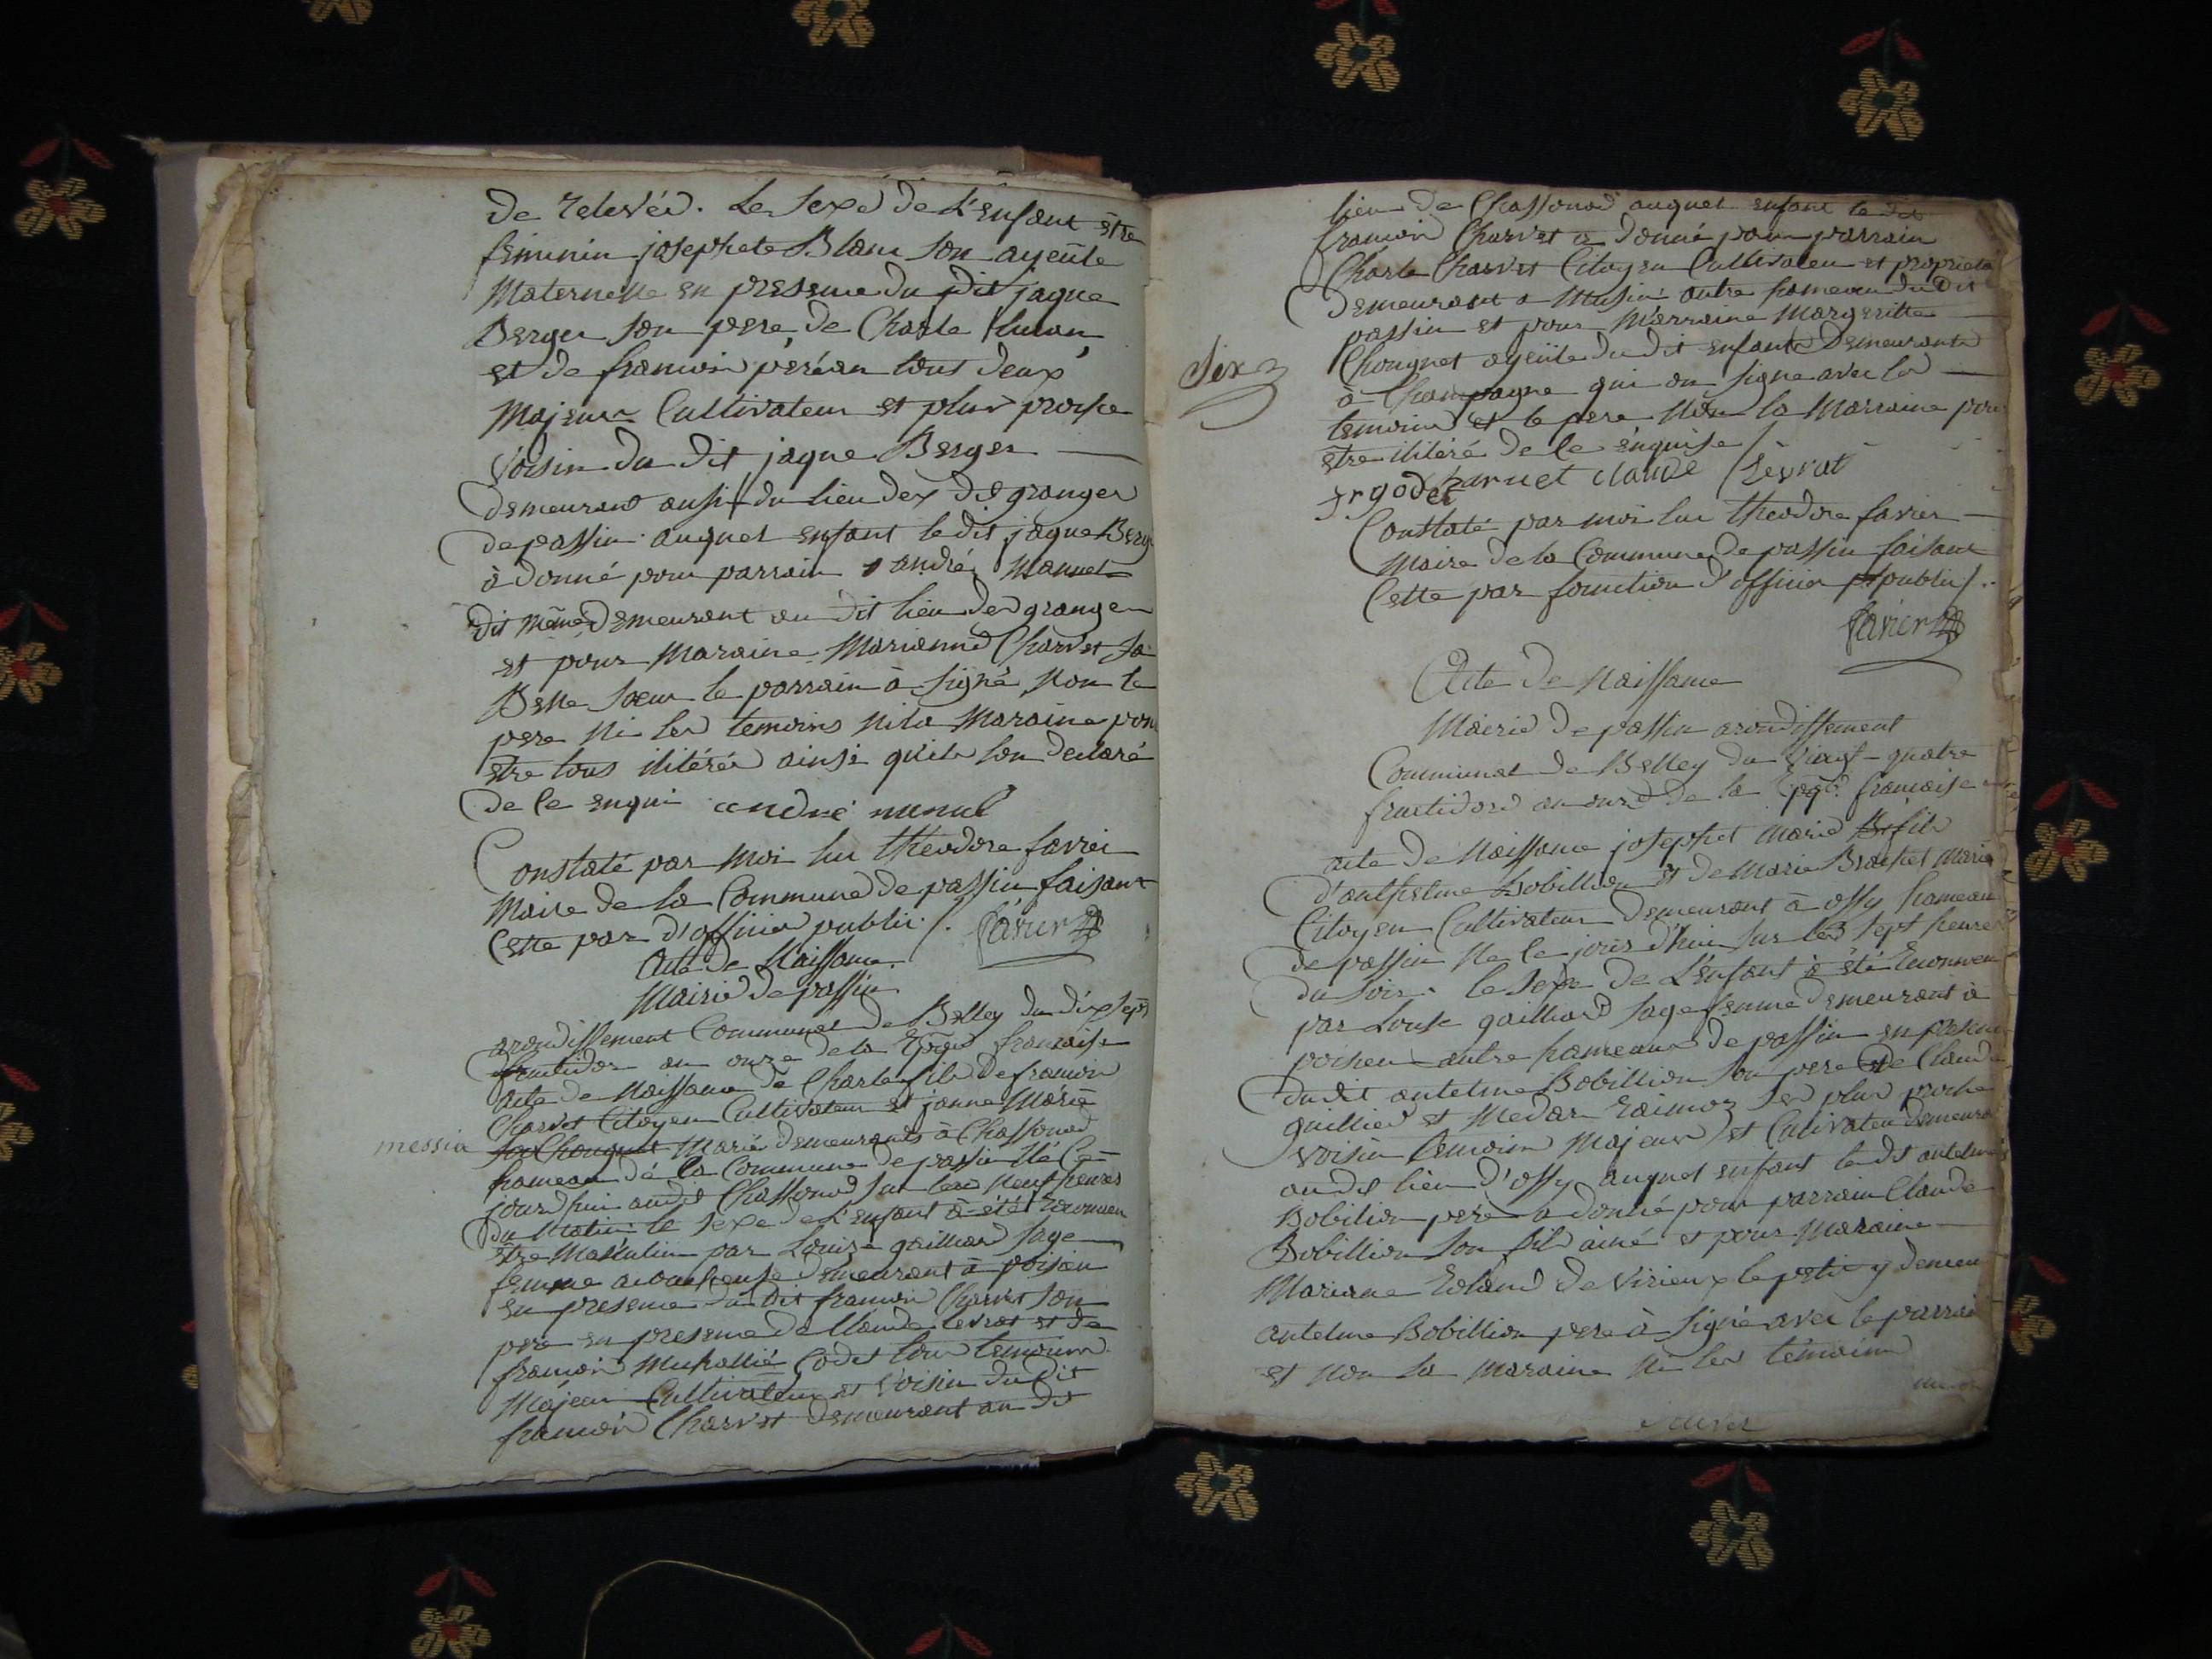 de relevéd. Le Sexe de L'enfant être
feminin josephete Blanc son ayeüle
Maternelle en presence du dit jaque
Berger son pere, de Charle
et de francoin peréan tous deux
Majeurs Cultivateur et plus proche
Voisin du dit jaque Berger
demeurant ausi du lieu dex dit granges
de passin auquel enfant le dit jaque Berge
à donné pour parrain andré
dit même demeurant au dit lieu des granges
et pour Maraine Marianne Charvet sa
Belle soeur le parrain à signé Non le
pere Ni les temoins Ni la Maraine pour
être tous ilitérés ainsi qu'ils l'on declaré
de ce enqui andré
Constaté par Moi luc théodore favier
Maire de la Commune de passin faisant
Cette par d'officier public /. favier
Acte de Naissance.
Mairie de passin
arondissement Communal de Belley du dixsept
fructidor an onze de la Repque francaise
acte de Naissance de Charle fils de francoin
Charvet Citoyen Cultivateur et janne Marie
messia Chougnet Mariés demeurants à Chassonod
hameau dé la Commune de passin Né Ce
jourd'hui audit Chassonod sur les Neuf heures
du Matin le sexe de L'enfant à été reconneu
être Masculin par Louise gailliard sage
femme acoucheuse demeurant à poisieu
en presence du dit francoin Charvet son
pere en presence de Claude levrat et de
francoin Godet tous temoins
Majeur Cultivateur et Voisin du dit
francoin Charvet demeurant au dit
lieu de Chassonod auquel enfant le dit
francoin Charvet a donné pour parrain
Charle Charvet Citoyen Cultivateur et proprieta
demeurant a Musin autre hameau du dit
passin et pour Marraine Margeritte
Six
Chougnet ayeüle du dit enfant demeurante
à Champagne qui on signe avec le
temoins et le pere Non la Marraine pour
être ilitéré de ce enquise /
charvet claude Levrat
godet
Constaté par moi luc théodore favier
Maire de la Commune de passin faisant
Cette par fonction d'officier public /.
favier
Acte de Naissance
Mairie de passin arondissement
Communal de Belley du Vingt-quatre
fructidord an onze de la francaise
acte de Naissance josephet Marie fils
d'anthelme Bobillion et de Marie Brachet Mariés
Citoyen Cultivateur demeurant à ossy hameau
de passin Ne le jours d'hui sur les sept heures
du soir. le Sexe de L'enfant à été reconneu
par Louise gailliard sage femme demeurant à
poisieu autre hameau de passin en presence
du dit antelme Bobillion son pere de Claude
guillied et Medar Raimoz ses plus proche
voisin temoin Majeurs et Cultivateur demeura
au dit lieu d'ossy auquel enfant le dit antelme
Bobillion pere a donné pour parrain Claude
Bobillion son fils ainé et pour Maraine
Mariane Roland de Virieux le petit y demeu
antelme Bobillion pere à signé avec le parrain
et Non la maraine Ni les temoins